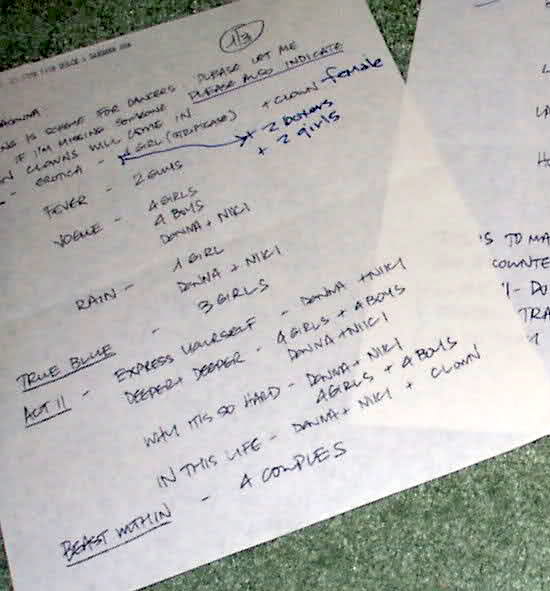 1/3
IS SCHEME FOR DANCERS, PLEASE LET ME
IF I'M MISSING SOMEONE PLEASE ALSO INDICATE
CLOWNS WILL COME IN
EROTICA - 1 GIRL (STRIPTEASE) + CLOWN female
+ 2 boxers
+ 2 girls
FEVER - 2 GUYS
VOGUE - 4 GIRLS
4 BOYS
DONNA + NIKI
RAIN - 1 GIRL
DONNA + NIKI
TRUE BLUE - 3 GIRLS
ACT II - EXPRESS YOURSELF - DONNA + NIKI
DEEPER + DEEPER - 4 GIRLS + 4 BOYS
DONNA + NIKI
WHY IT'S SO HARD - DONNA + NIKI
4 GIRLS + 4 BOYS
IN THIS LIFE - DONNA + NIKI + CLOWN
BEAST WITHIN - 4 COUPLES
'S TO MA
COUNTE
TRA